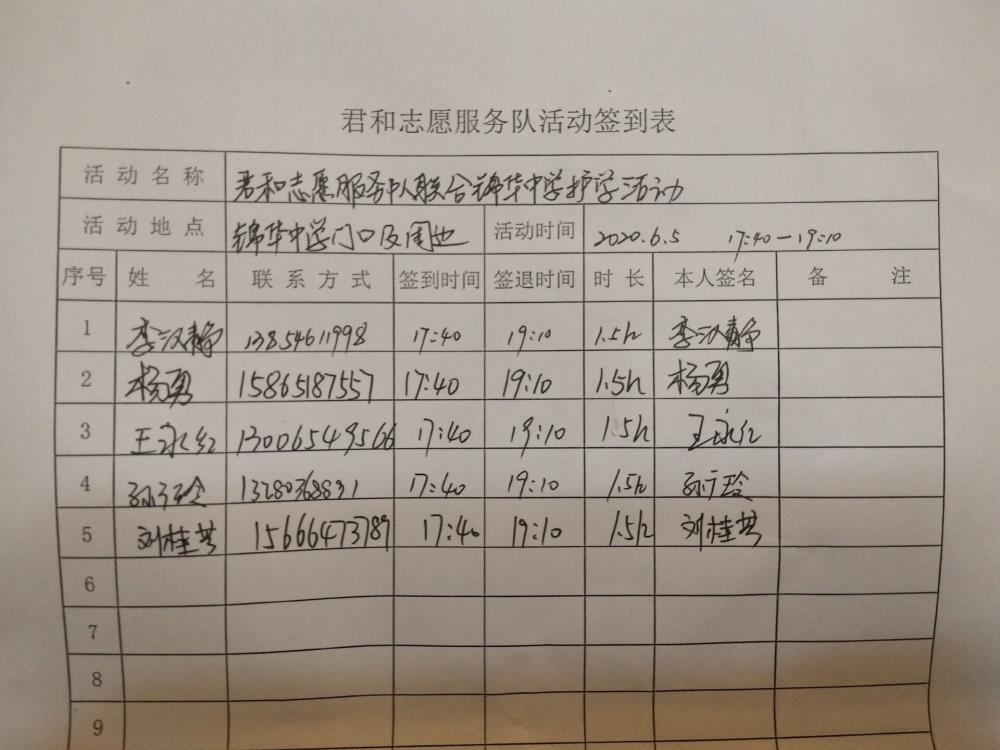 君和志愿服务队活动签到表
活动名称 君和志愿服务队联合锦华中学护学活动
活动地点 锦华中学门口及周边 活动时间 2020.6.5 17:40-19:10
序号 姓名 联系方式 签到时间 签退时间 时长 本人签名 备注
1 李汉静 13854611998 17:40 19:10 1.5h 李汉静
2 杨勇 15865187557 17:40 19:10 1.5h 杨勇
3 王永红 13006549566 17:40 19:10 1.5h 王永红
4 孙玲 13280368831 17:40 19:10 1.5h 孙玲
5 刘桂芸 15666473789 17:40 19:10 1.5h 刘桂芸
6
7
8
9